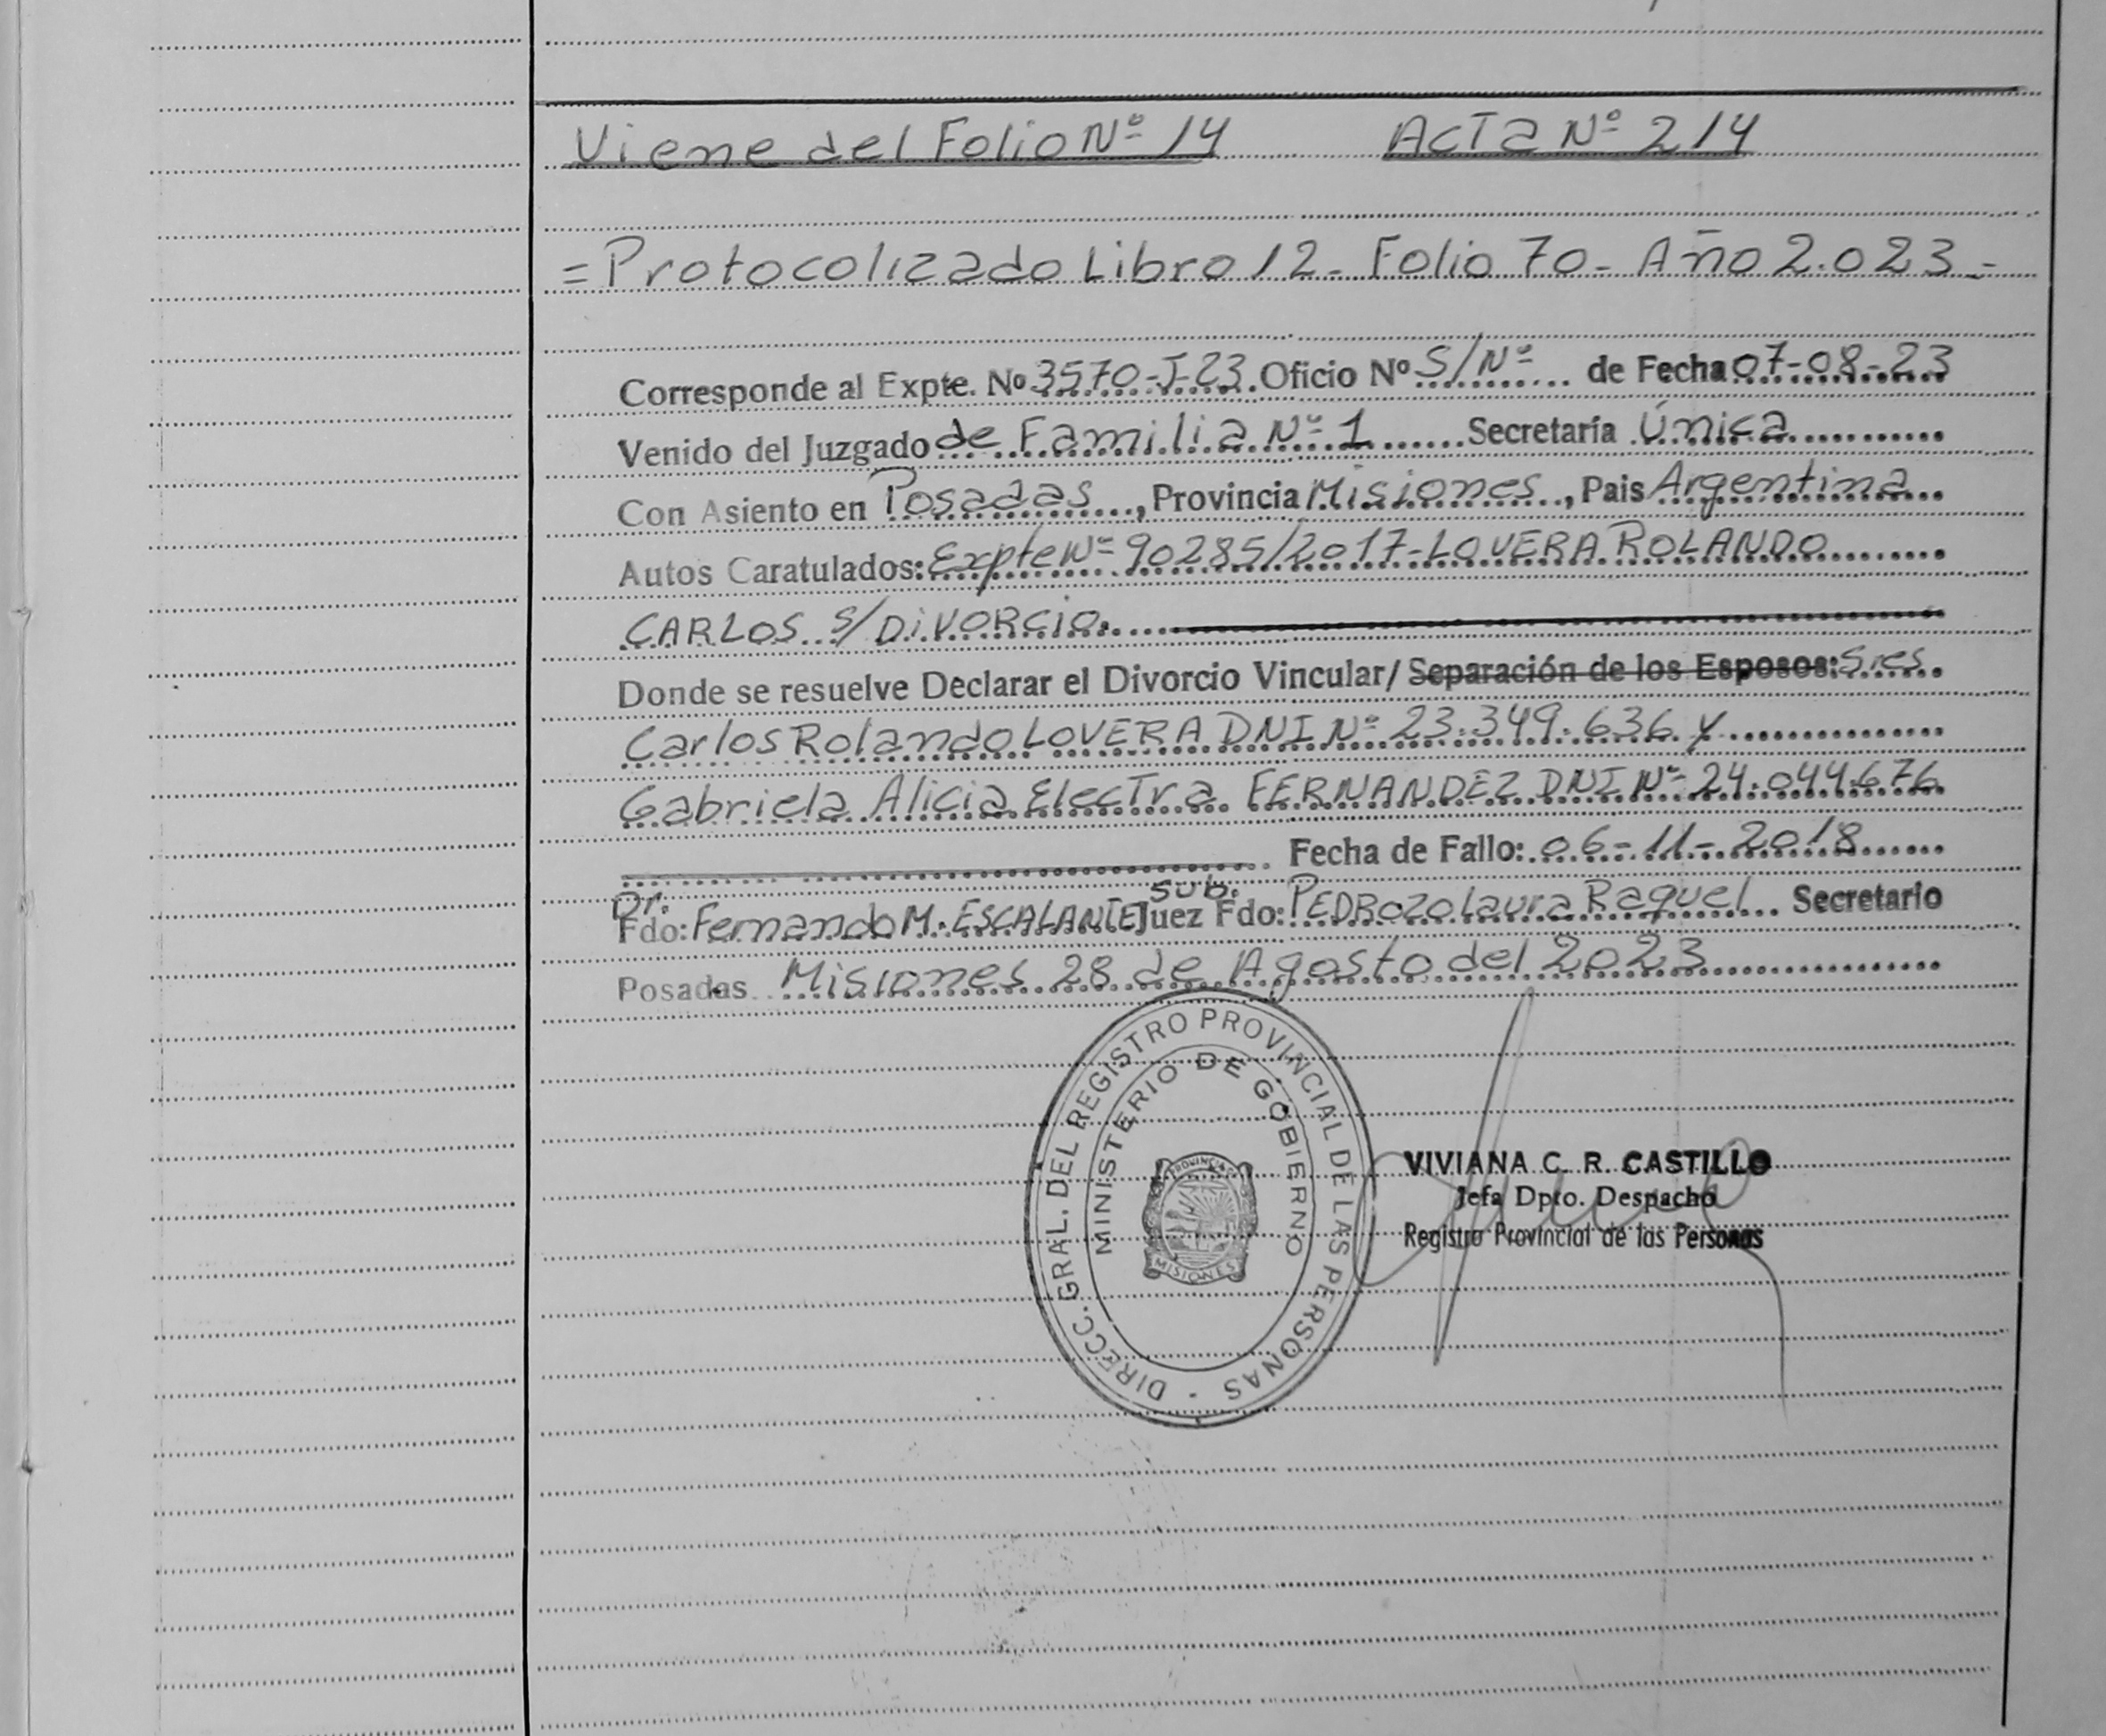 Viene del Folio Nº 14 Acta Nº 214
= Protocolizado Libro 12 - Folio 70 - Año 2.023 =
Corresponde al Expte. Nº 3570-J-23. Oficio Nº S/Nº de Fecha 07-08-23
Venido del Juzgado de Familia Nº 1 Secretaría Única
Con Asiento en Posadas, Provincia Misiones, Pais Argentina
Autos Caratulados: Expte Nº 90285/2017-LOVERA ROLANDO
CARLOS S/ DiVORCio.
Donde se resuelve Declarar el Divorcio Vincular/ Separación de los Esposos: Sres.
Carlos Rolando LOVERA DNI Nº 23.349.636 y
Gabriela Alicia Electra FERNANDEZ DNI Nº 24.044.676
Fecha de Fallo: 06-11-2018
Dr. Sub.
Fdo: Fernando M. ESCALANTE Juez Fdo: PEDROZO Laura Raquel Secretario
Posadas Misiones 28 de Agosto del 2023
DIRECC. GRAL. DEL REGISTRO PROVINCIAL DE LAS PERSONAS -
MINISTERIO DE GOBIERNO
PROVINCIA
MISIONES
VIVIANA C. R. CASTILLO
Jefa Dpto. Despacho
Registro Provincial de las Personas